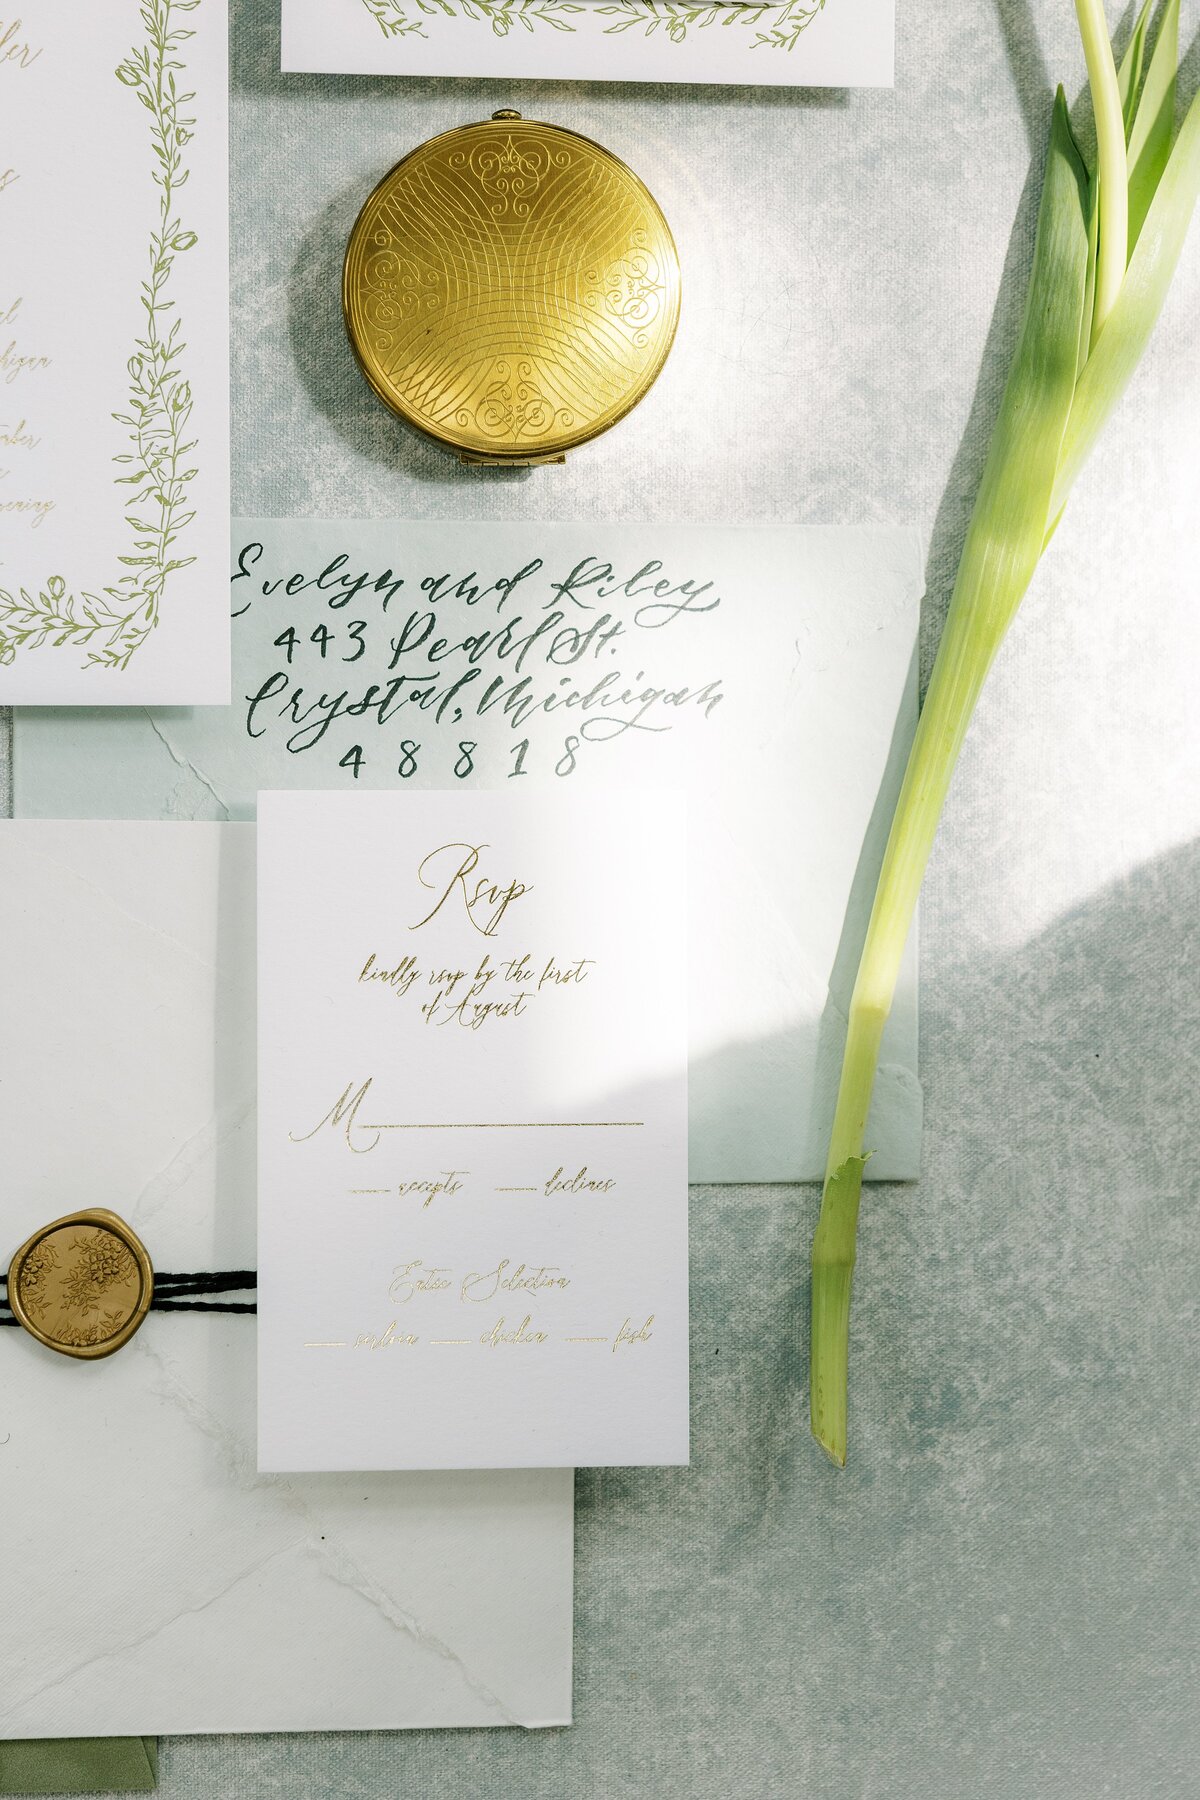 Evelyn and Riley
443 Pearl St.
Crystal, Michigan
48818
Rsvp
kindly rsvp by the first
of August
M
accepts declines
Entée Selection
sirloin chicken fish